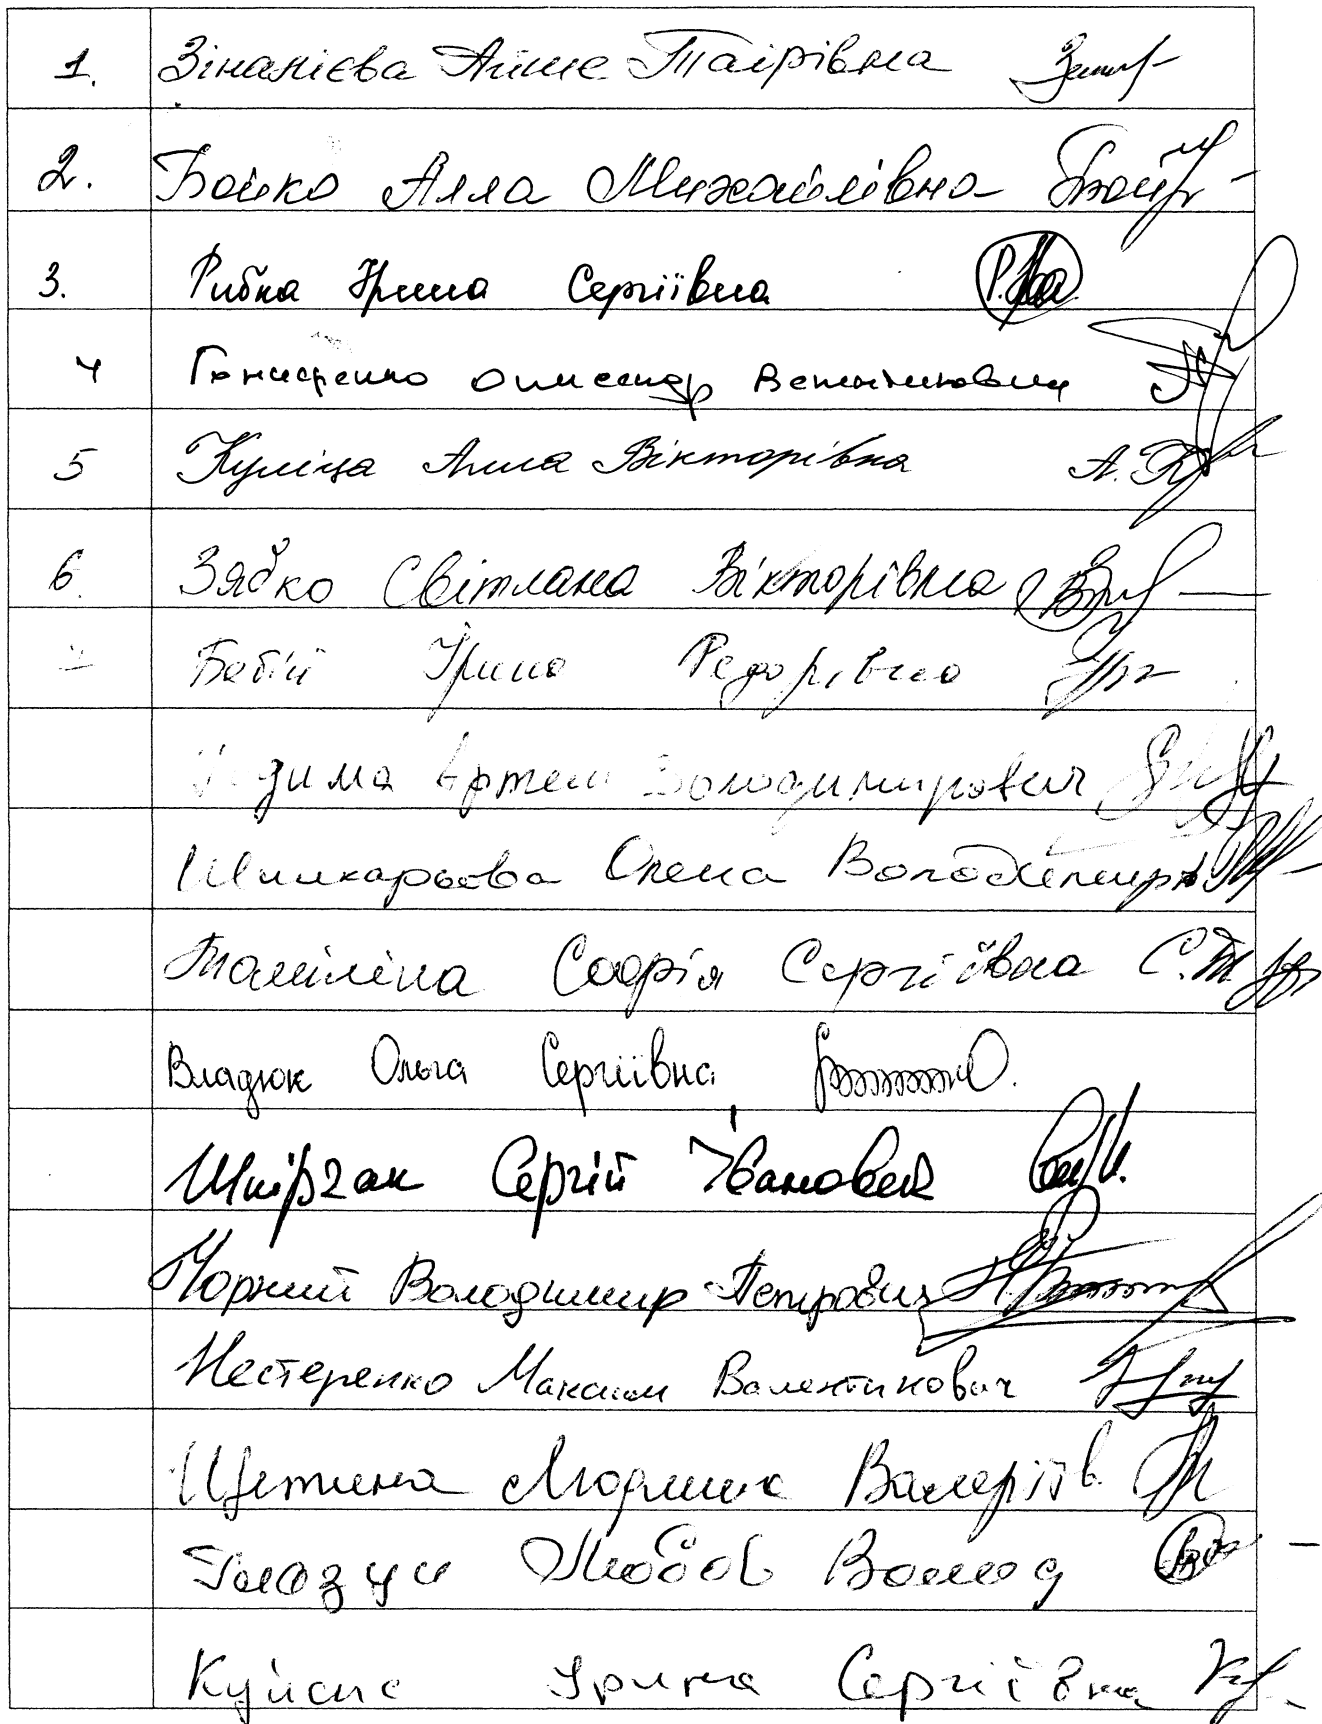 1. Зінанієва Айше Таірівна
2. Бойко Алла Михайлівна
3. Рибка Ірина Сергіївна
4 Гончаренко Олександр
5 Куліца Анна Вікторівна А.К
6. Зябко Світлана Вікторівна
Бабій Ірина Федорівна
Артем Володимирович
Олена Володимирів
Томіліна Софія Сергіївна С.Т
Владюк Ольга Сергіївна
Сергій Іванович
Чорний Володимир Петрович
Нестеренко Максим Валентинович
Щетина Людмила Валеріїв
Любов Волод
Ірина Сергіївна